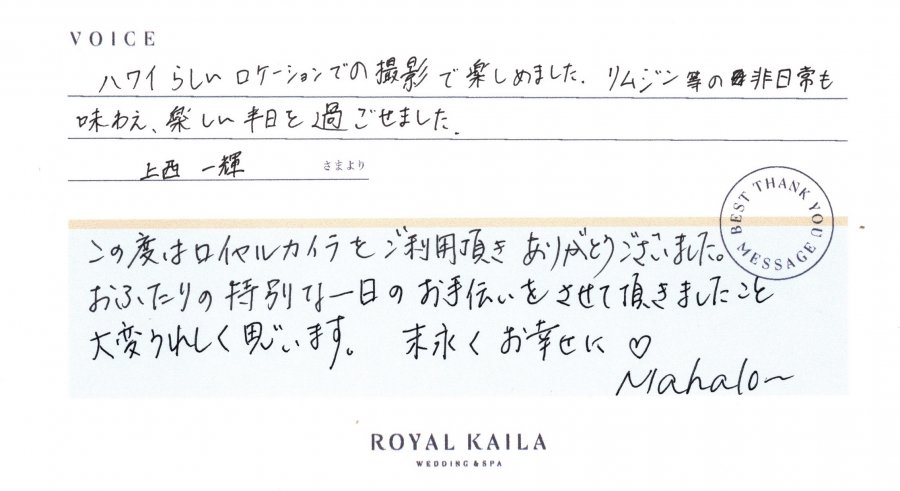 VOICE
ハワイらしいロケーションでの撮影で楽しめました. リムジン等の非日常も
味わえ、楽しい半日を過ごせました.
上西 一輝 さまより
BEST THANK YOU MESSAGE
この度はロイヤルカイラをご利用頂きありがとうございました。
おふたりの特別な一日のお手伝いをさせて頂きましたこと
大変うれしく思います。 末永くお幸せに ♡
Mahalo~
ROYAL KAILA
WEDDING & SPA